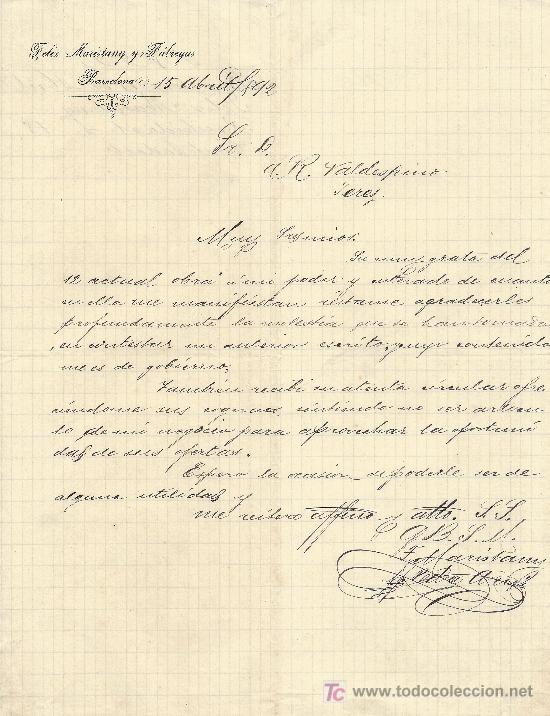 Felix Maristany y Fábregas
Barcelona 15 Abril 1892
Sr. D.
A. R. Valdespino.
Jerez
Muy Sr. mio:
Su muy grata del
12 actual obra á mi poder y enterado de cuanto
en ella me manifiestan réstame agradecerles
profundamente la molestia que se han tomado
en contestar mi anterior escrito, cuyo contenido
me es de gobierno.
Tambien recibi su atenta circular ofre
ciendome sus cognacs, sintiendo no ser articu
lo de mi negocio para aprovechar la oportuni
dad de sus ofertas.
Espero la ocasion de poderle ser de
alguna utilidad y
me reitero affmo y atto. S. S.
Q. B. S. M.
F. Maristany
TC www.todocoleccion.net